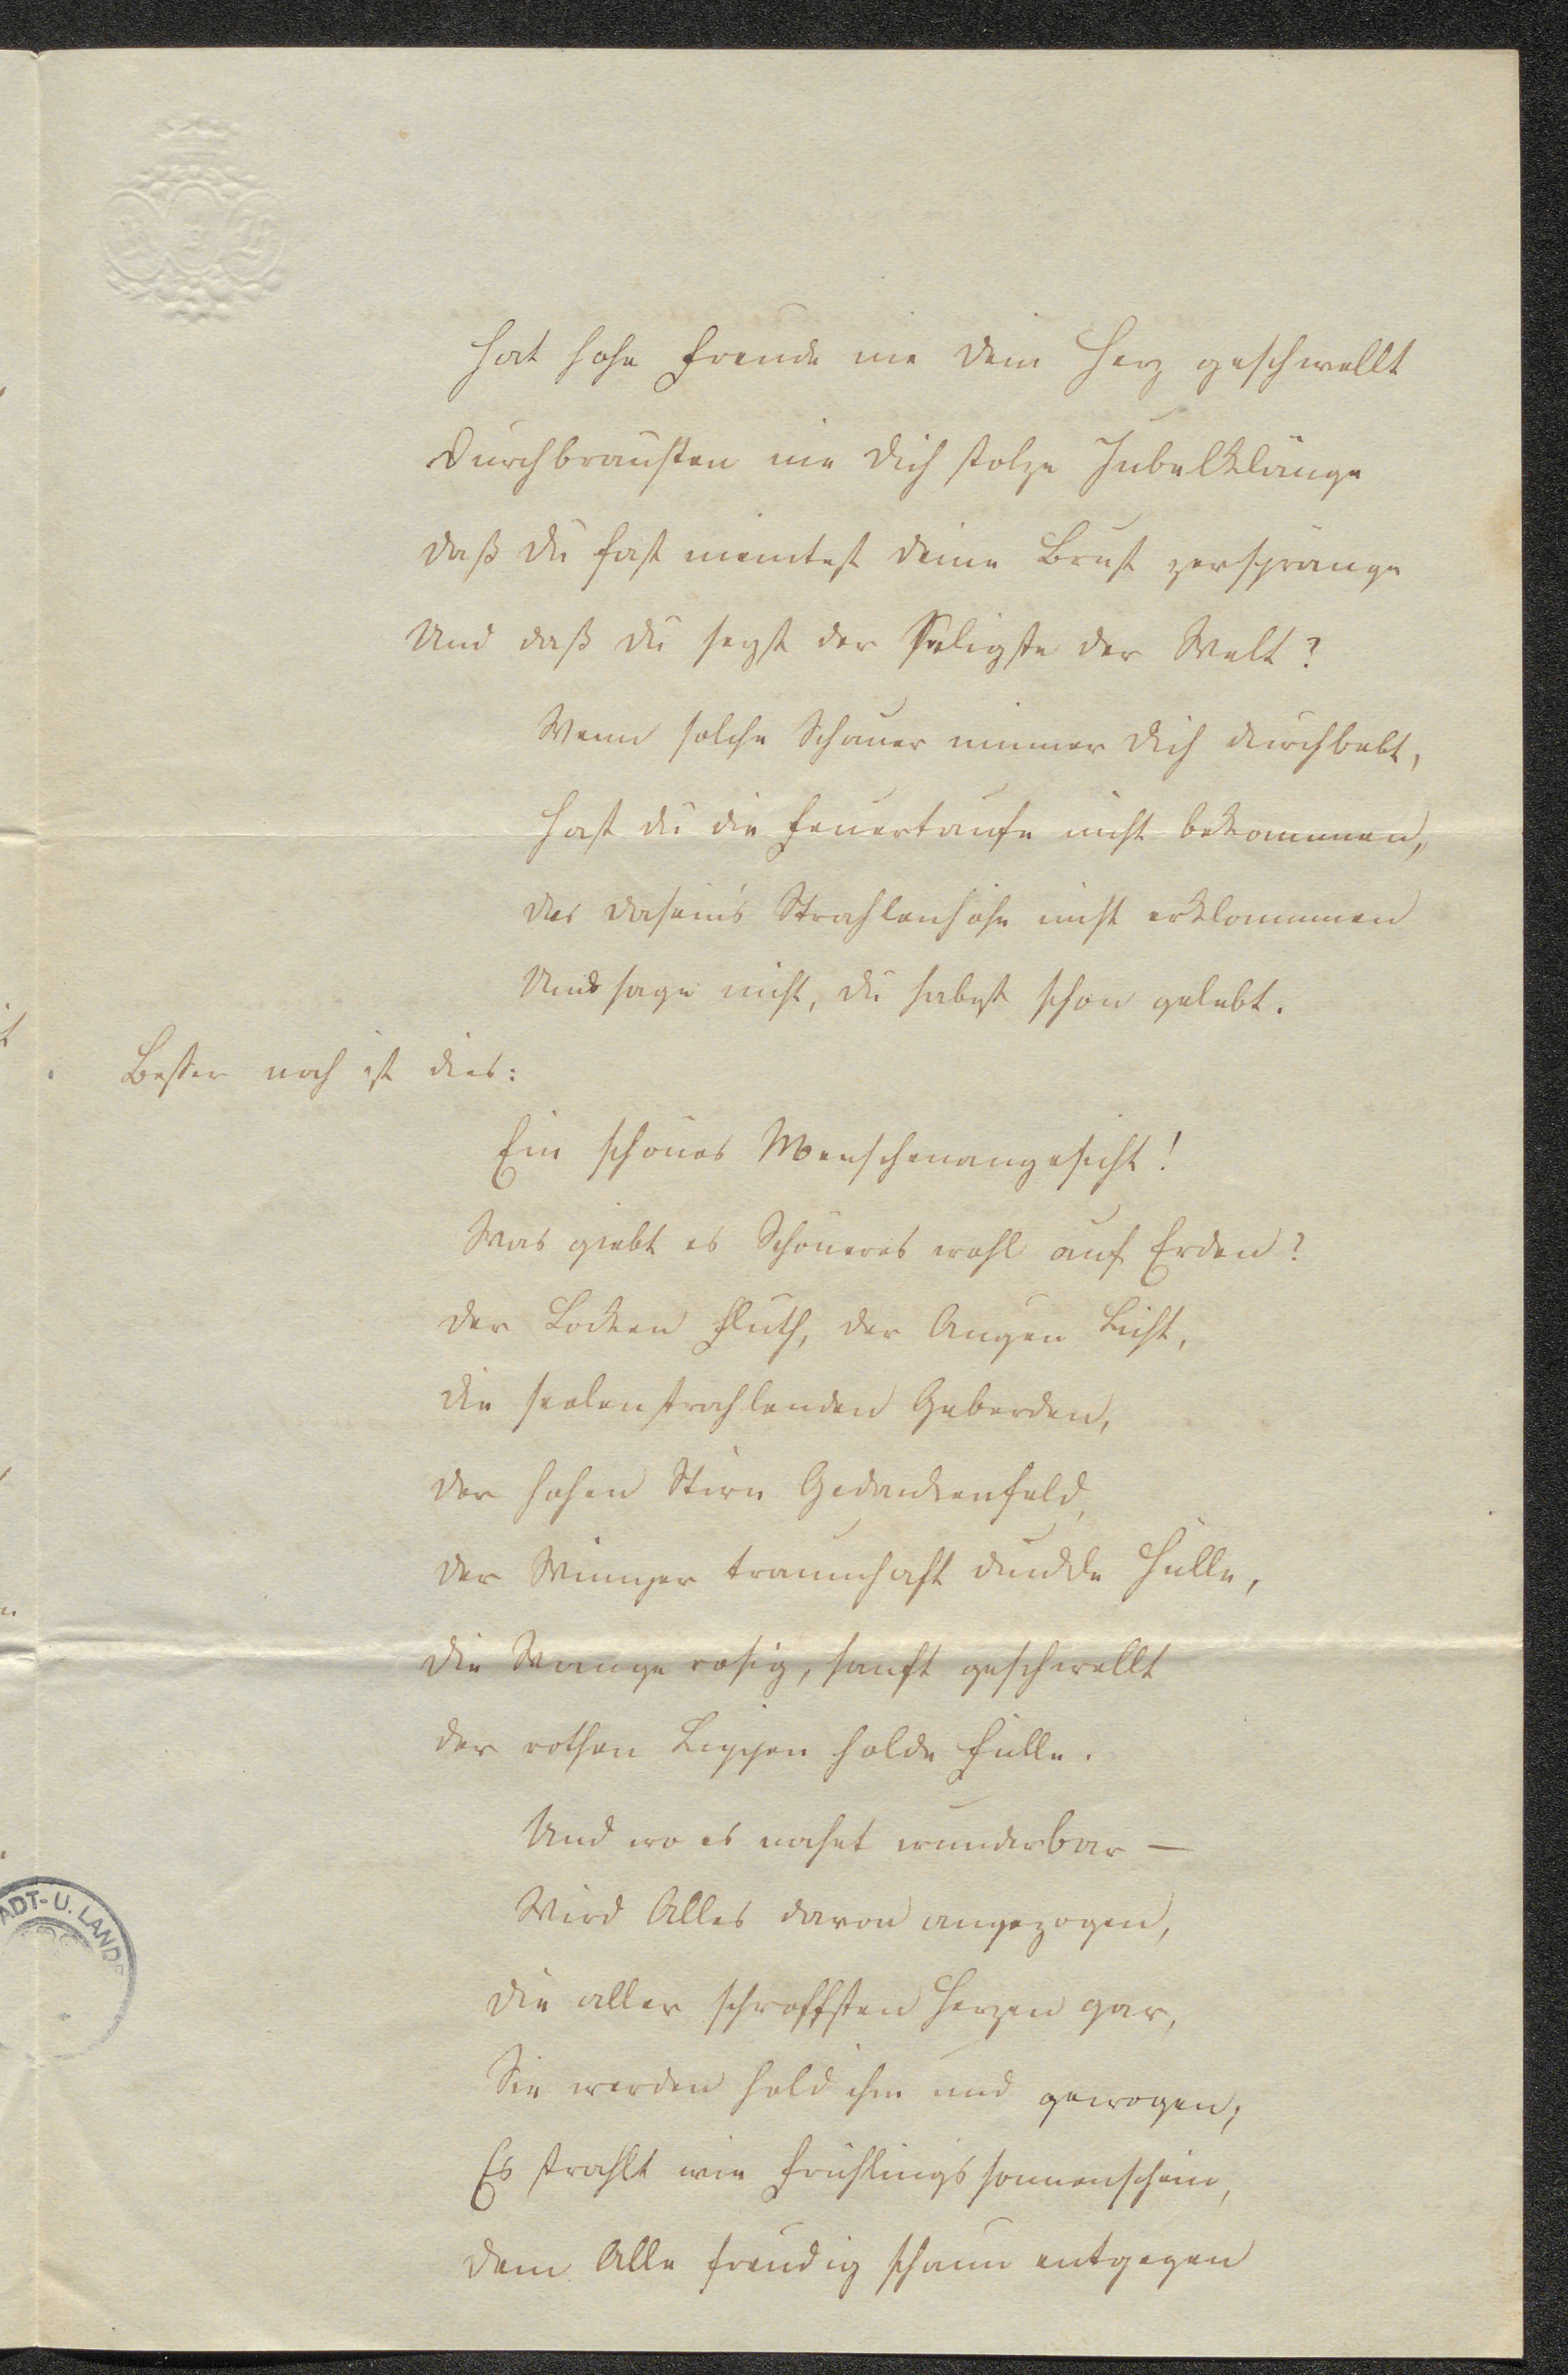 Hat hohe Freude nie dein Herz geschwellt
Durchbrausten nie dich stolze Jubelklänge
daß du fast meintest deine Brust zerspränge
Und daß du seyst der Seligste der Welt?
Wenn solche Schauer nimmer dich durchbebt,
Hast du die Feuertaufe nicht bekommen,
des Dasein's Strahlenhöhe nicht erklommen
Und sage nicht, du habest schon gelebt.
Besser noch ist dies:
Ein schönes Menschenangesicht!
Was giebt es Schöneres wohl auf Erden?
der Locken Fluth, der Augen Licht,
die seelenstrahlenden Geberden,
der hohen Stirn Gedankenfeld,
der Wimper traumhaft dunkle Hülle,
die Wange rosig, sanft geschwellt
der rothen Lippen holde Fülle.
Und wo es nahet wunderbar –
Wird Alles davon angezogen,
die aller schroffsten Herzen gar,
Sie werden hold ihm und gewogen;
Es strahlt wie Frühlingssonnenschein,
dem Alle freudig schaun entgegen
ADT- U. LANDE